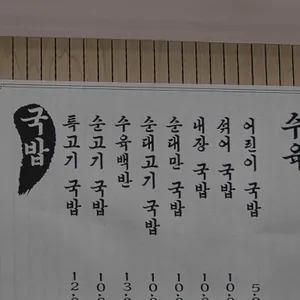 국밥
특고기 국밥
순고기 국밥
수육백반
순대고기 국밥
순대만 국밥
내장 국밥
섞어 국밥
어린이 국밥
수육
12.0
10.0
13.0
10.0
10.0
10.0
10.0
5.0